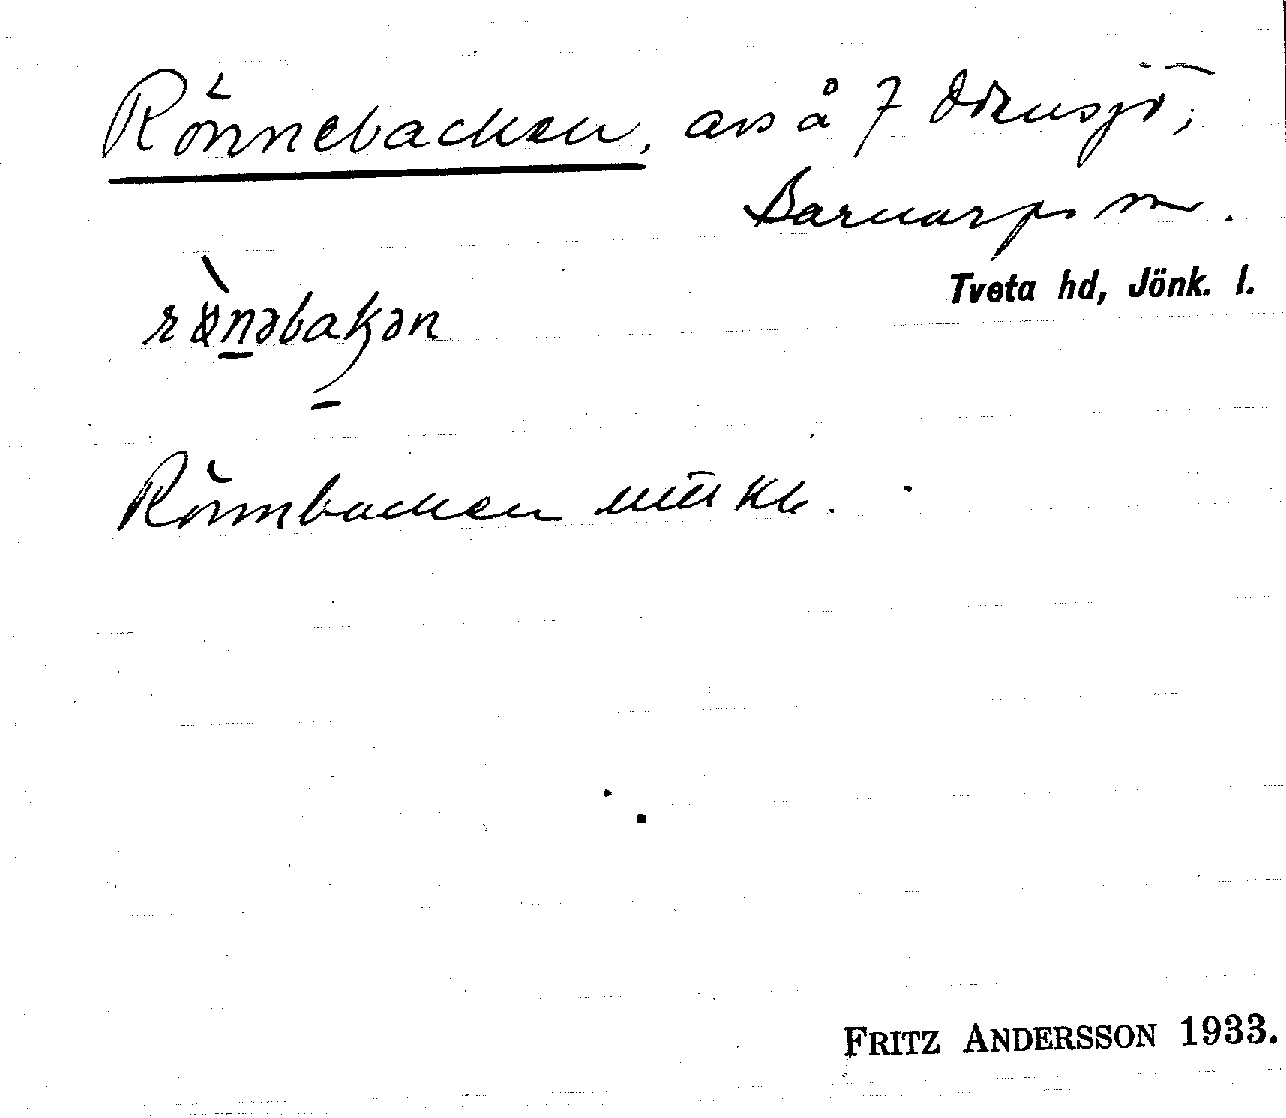 Rönnebacken, avs å 7 Örensjö,
Barnarps sn.
Tveta hd, Jönk. l.
rö̀nəbakən
Rönnbacken
FRITZ ANDERSSON 1933.